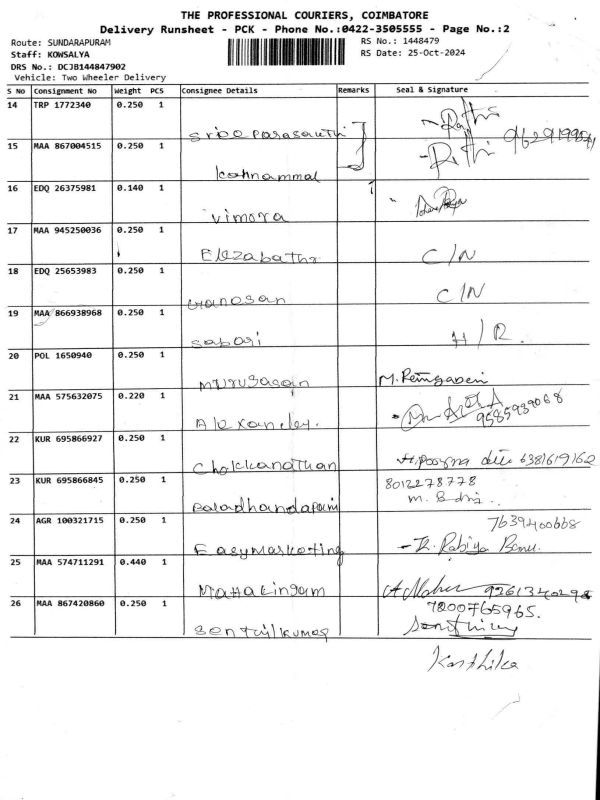 THE PROFESSIONAL COURIERS, COIMBATORE
Delivery Runsheet - PCK - Phone No.:0422-3505555 - Page No.:2
Route: SUNDARAPURAM
RS No.: 1448479
Staff: KOWSALYA
RS Date: 25-Oct-2024
DRS No.: DCJB144847902
Vehicle: Two Wheeler Delivery
S No Consignment No Weight PCS Consignee Details Remarks Seal & Signature
14 TRP 1772340 0.250 1
15 MAA 867004515 0.250 1
16 EDQ 26375981 0.140 1
vimora
17 MAA 945250036 0.250 1
C/N
18 EDQ 25653983 0.250 1
C/N
19 MAA 866938968 0.250 1
sabari H/R.
20 POL 1650940 0.250 1
murugasan
21 MAA 575632075 0.220 1
22 KUR 695866927 0.250 1
Chokkanathan 6381619162
23 KUR 695866845 0.250 1 8012278778
24 AGR 100321715 0.250 1 7639400668
Easymarketing R. Rabiya Banu.
25 MAA 574711291 0.440 1
MAHALingam
26 MAA 867420860 0.250 1 7200765965.
Karthika